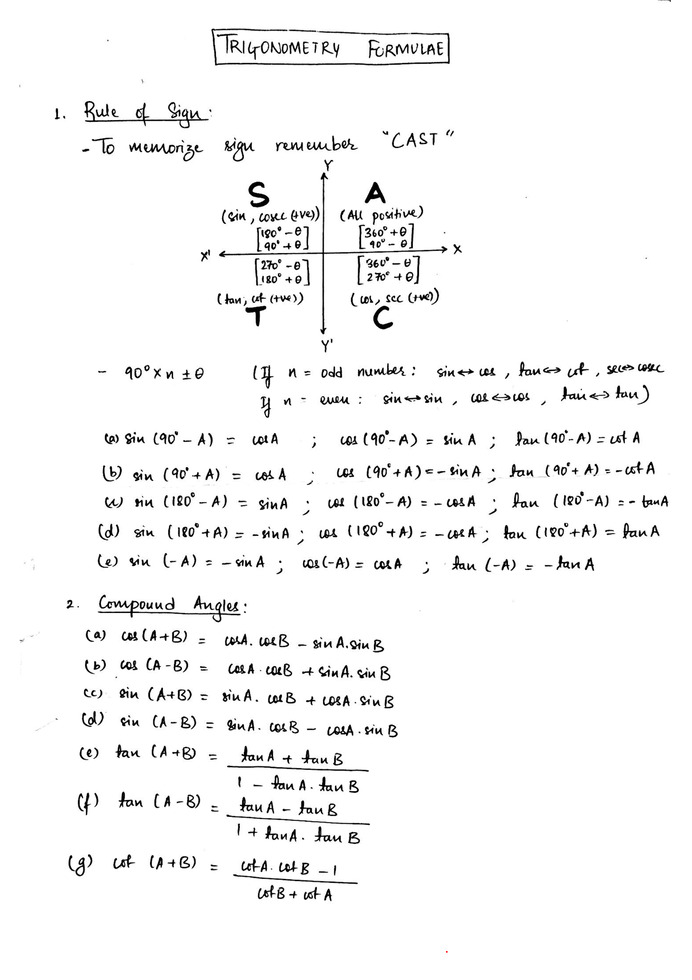 TRIGONOMETRY FORMULAE
1. Rule of Sign:
- To memorize sign remember "CAST"
Y
S A
(sin, cosec (+ve)) (All positive)
[180° - θ] [360° + θ]
[90° + θ] [90° - θ]
X' X
[270° - θ] [360° - θ]
[180° + θ] [270° + θ]
(tan, cot (+ve)) (cos, sec (+ve))
T C
Y'
- 90° × n ± θ (If n = odd number: sin↔cos, tan↔cot, sec↔cosec
If n = even: sin↔sin, cos↔cos, tan↔tan)
(a) sin (90° - A) = cosA ; cos (90° - A) = sin A ; tan (90° - A) = cot A
(b) sin (90° + A) = cos A ; cos (90° + A) = - sin A ; tan (90° + A) = -cot A
(c) sin (180° - A) = sinA ; cos (180° - A) = - cosA ; tan (180° - A) = - tanA
(d) sin (180° + A) = -sinA ; cos (180° + A) = - cosA ; tan (180° + A) = tan A
(e) sin (-A) = - sin A ; cos(-A) = cosA ; tan (-A) = - tan A
2. Compound Angles:
(a) cos (A+B) = cosA. cosB - sinA. sinB
(b) cos (A-B) = cosA. cosB + sinA. sin B
(c) sin (A+B) = sinA. cosB + cosA. sinB
(d) sin (A-B) = sinA. cosB - cosA. sin B
(e) tan (A+B) = tanA + tanB
1 - tan A. tan B
(f) tan (A-B) = tanA - tanB
1 + tanA. tan B
(g) cot (A+B) = cotA. cot B - 1
cotB + cot A